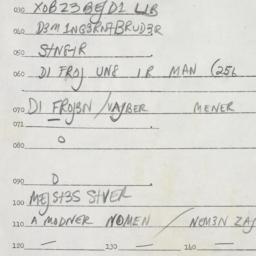 030 XOBZ3BEJDI LIB
040 D3M INGERNABRUD3R
050 SHNEIR
060 DI FROJ UNE IR MAN (25L
070 DI FROJ3N / VAJBER MENER
071
080 0
090 0
100 MEJST3S SHVER
110 A MODNER NOMEN / NEM3N ZAJ
120 — 130 — 140 —